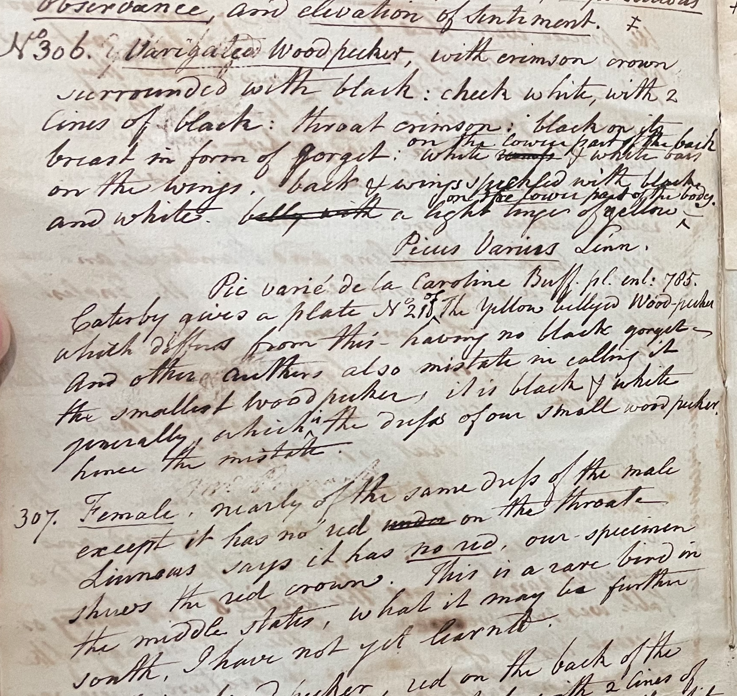 observance, and elevation of sentiment.
No 306. Varigated Woodpecker, with crimson crown
surrounded with black: cheek white, with 2
lines of black: throat crimson: black on its
breast in form of gorget: white & white bars
on the lower part of the back
on the wings. back & wings speckled with black
and white. belly with a light tinge of yellow
on the lower part of the body.
Picus Varius Linn.
Pic varié de la Caroline Buff. pl. enl: 785.
Catesby gives a plate No 21 of The Yellow bellyed Wood-pecker
which differs from this - having no black gorget -
And other authers also mistake in calling it
the smallest woodpecker, it is black & white
generally, which is the dress of our small woodpecker,
hence the mistake.
307. Female. nearly of the same dress of the male
except it has no red under on the throate
Linneaus says it has no red, our specimen
shews the red crown. This is a rare bird in
the middle states, what it may be further
south, I have not yet learnt.
pecker, red on the back of the
with 2 lines of